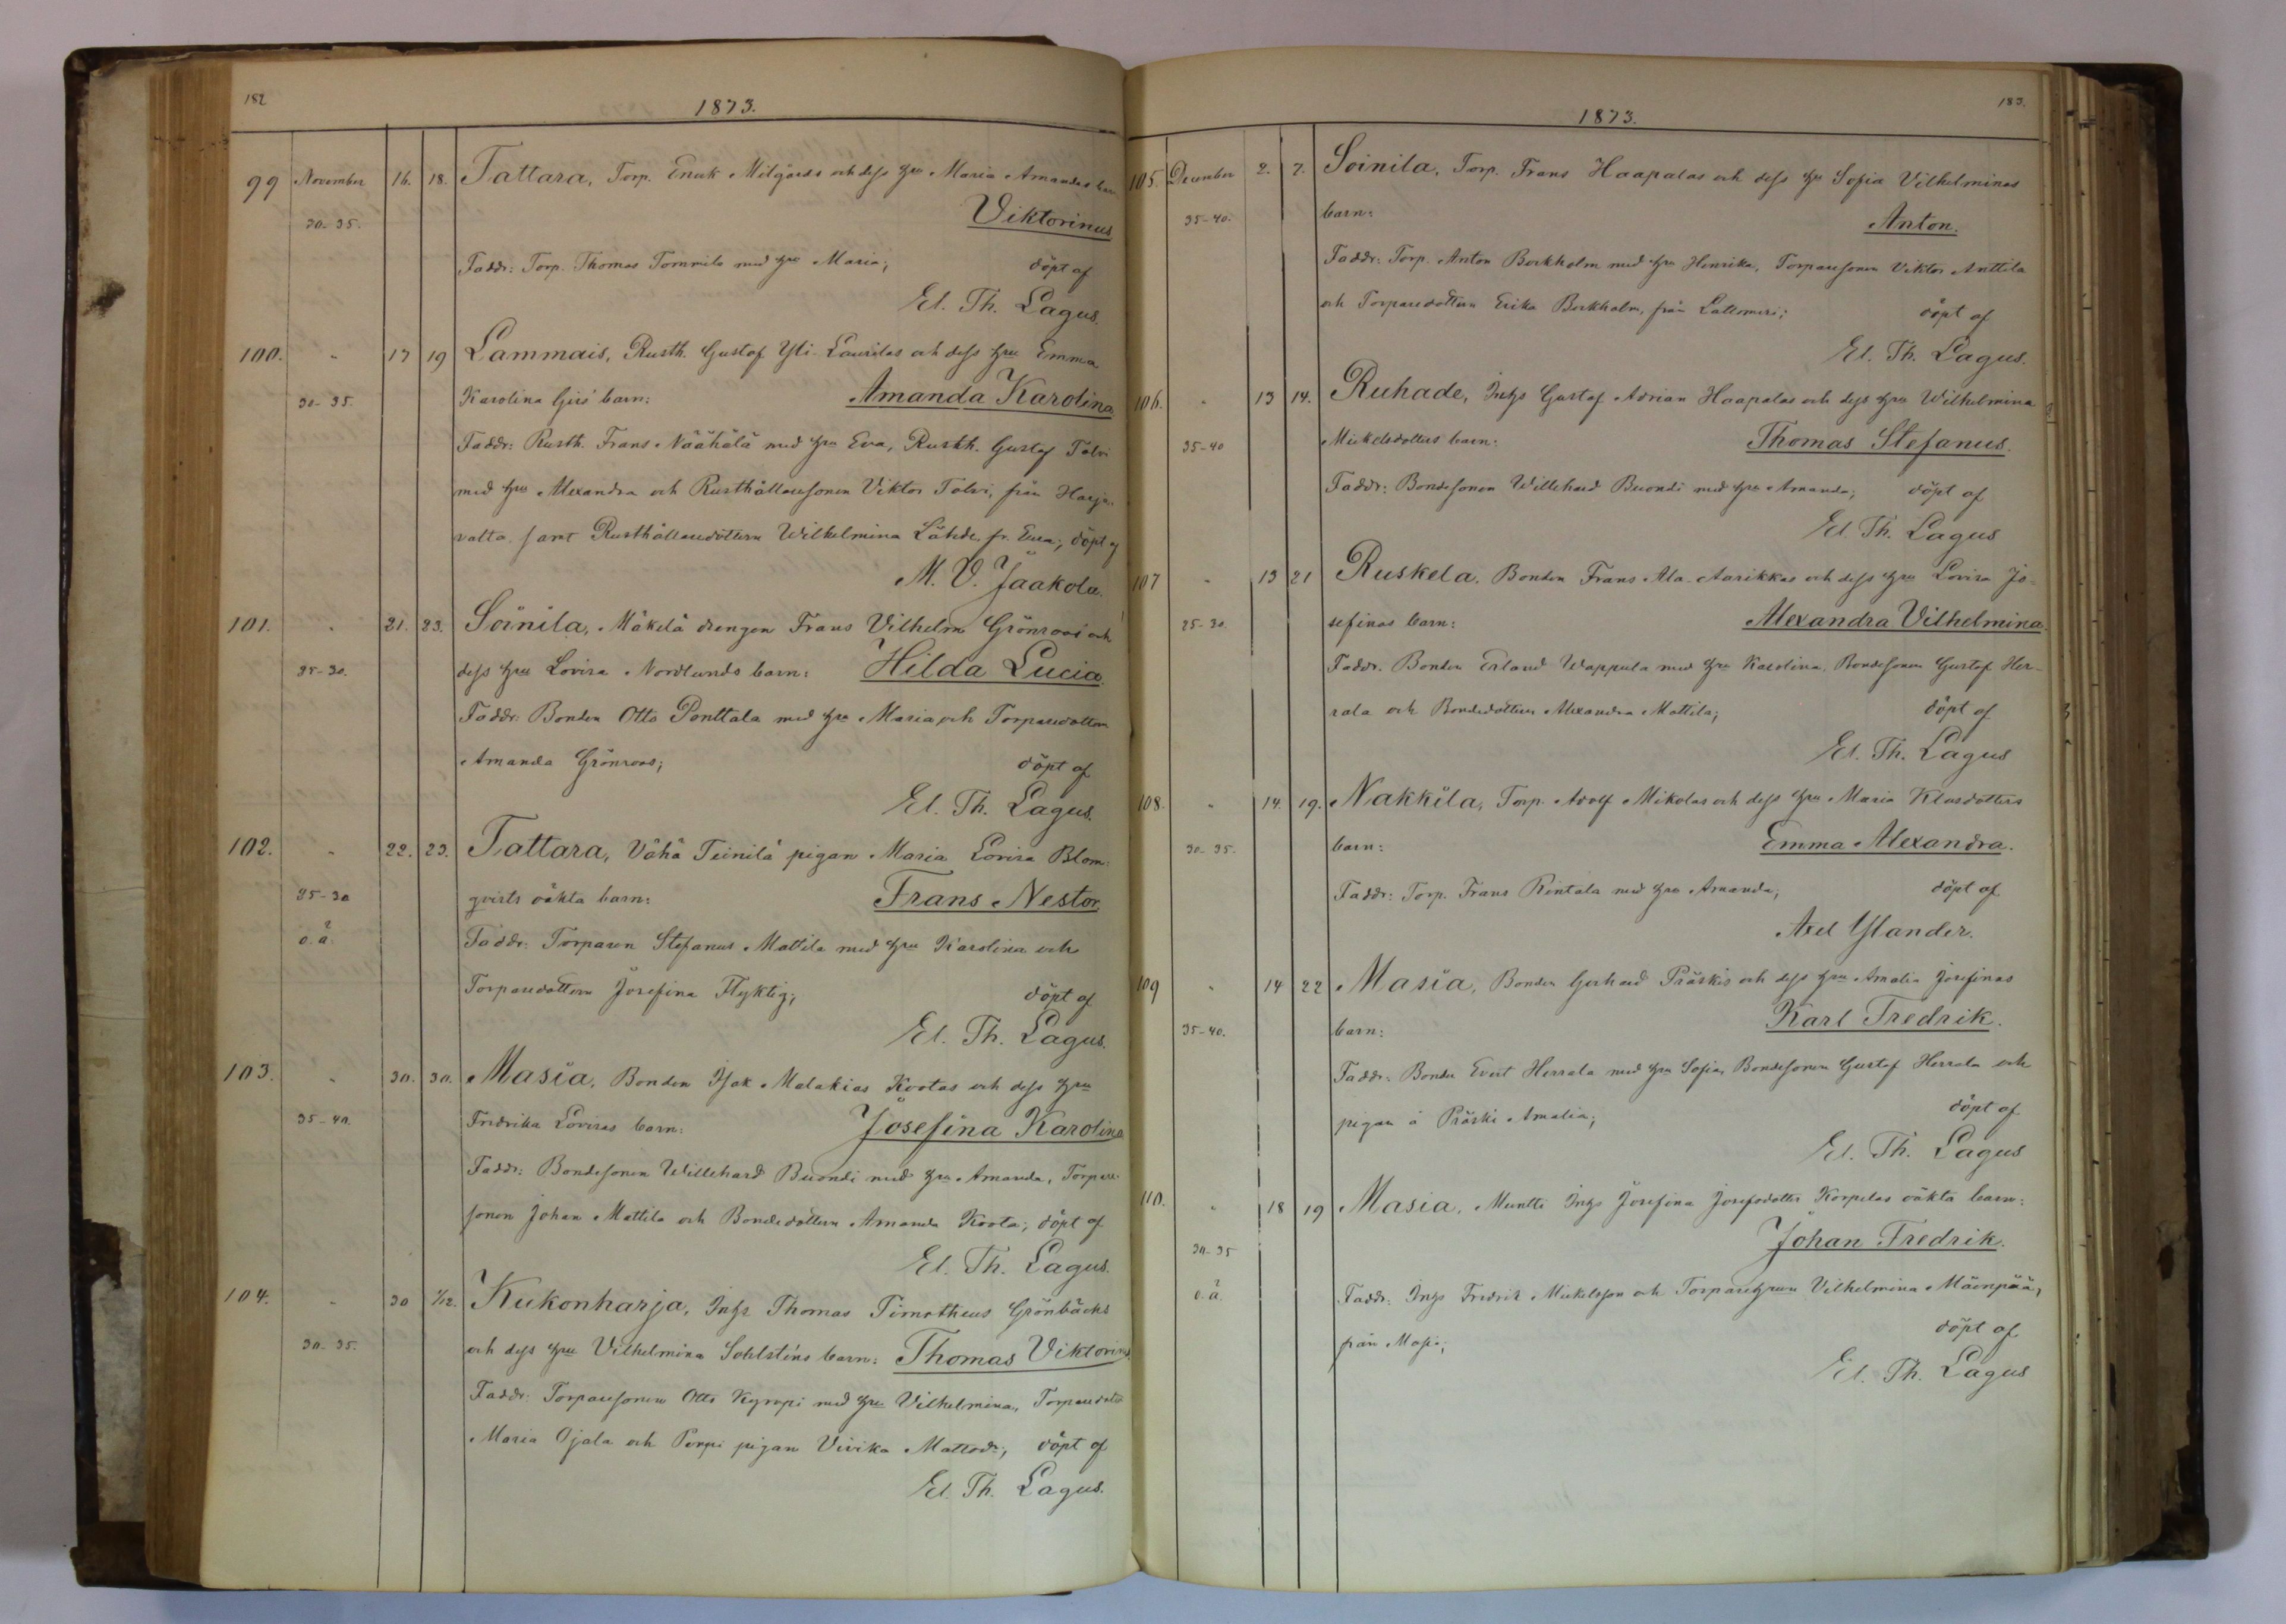 182
1873.
99 November 16. 18. Tattara, Torp. Enok Milgårds och dess hru Maria Amandas barn
30-35. Viktorinus
Faddr: Torp. Thomas Tommila med hru Maria; döpt af
El. Th. Lagus.
100. " 17 19 Lammais, Rusth. Gustaf Yli-Laurilas och dess hru Emma
30-35. Karolina Girs barn: Amanda Karolina
Faddr: Rusth. Frans Näähälä med hru Eva, Rusth. Gustaf Tolvi
med hru Alexandra och Rusthållaresonen Viktor Tolvi, från Harja-
valta samt Rusthållaredottern Wilhelmina Lähde, fr. Eura; döpt af
M. V. Jaakola.
101. " 21. 23. Soinila, Mäkelä drengen Frans Vilhelm Grönroos och
25-30. dess hru Lovisa Nordlunds barn: Hilda Lucia.
Faddr: Bonden Otto Ponttala med hru Maria och Torparedottern
Amanda Grönroos; döpt af
El. Th. Lagus.
102. " 22. 23. Tattara, Vähä Teinilä pigan Maria Lovisa Blom-
25-30 qvists oäkta barn: Frans Nestor.
o. ä. Faddr: Torparen Stefanus Mattila med hru Karolina och
Torparedottern Josefina Flyktig; döpt af
El. Th. Lagus.
103. " 30. 30. Masia, Bonden Isak Malakias Kootas och dess hru
35-40. Fredrika Lovisas barn: Josefina Karolina
Faddr: Bondesonen Willehard Buondi med hru Amanda, Torpare-
sonen Johan Mattila och Bondedottern Amanda Koota; döpt af
El. Th. Lagus.
104. " 30 1/12. Kukonharja, Inhs Thomas Timotheus Grönbäcks
30-35. och dess hru Vilhelmina Sohlsténs barn: Thomas Viktorinus
Faddr: Torparesonen Otto Kyröpi med hru Vilhelmina, Torparedotter
Maria Ojala och pigan Vivika Mattsdr; döpt af
El. Th. Lagus.
183.
1873.
105. December 2. 7. Soinila, Torp. Frans Haapalas och dess hru Sofia Vilhelminas
35-40. barn: Anton.
Faddr: Torp. Anton Borkholm med hru Henrika, Torparesonen Viktor Anttila
och Torparedottern Erika Borkholm, från Lattomeri; döpt af
El. Th. Lagus.
106. " 13 14. Ruhade, Inhs Gustaf Adrian Haapalas och dess hru Wilhelmina
35-40 Mickelsdotters barn: Thomas Stefanus.
Faddr: Bondesonen Willehard Buondi med hru Amanda; döpt af
El. Th. Lagus
107 " 13 21 Ruskela, Bonden Frans Ala-Aarikkas och dess hru Lovisa Jo-
25-30. sefinas barn: Alexandra Vilhelmina.
Faddr. Bonden Erland Wappula med hru Karolina, Bondesonen Gustaf Her-
rala och Bondedottern Alexandra Mattila; döpt af
El. Th. Lagus
108. " 14. 19. Nakkila, Torp. Adolf Mikolas och dess hru Maria Klasdotters
30-35. barn: Emma Alexandra.
Faddr: Torp. Frans Rintala med hru Amanda; döpt af
Axel Ylander.
109 " 14 22 Masia, Bonden Gerhard Präskis och dess hru Amalia Josefinas
35-40. barn: Karl Fredrik.
Faddr: Bonden Evert Herrala med hru Sofia, Bondesonen Gustaf Herrala och
pigan å Präski Amalia; döpt af
El. Th. Lagus
110. " 18 19 Masia, Muntti Inhs Josefina Josefsdotter Korpelas oäkta barn:
30-35 Johan Fredrik.
o. ä. Faddr: Inhs Fredrik Mickelsson och Torparehrun Vilhelmina Mäenpää,
från Masia; döpt af
El. Th. Lagus